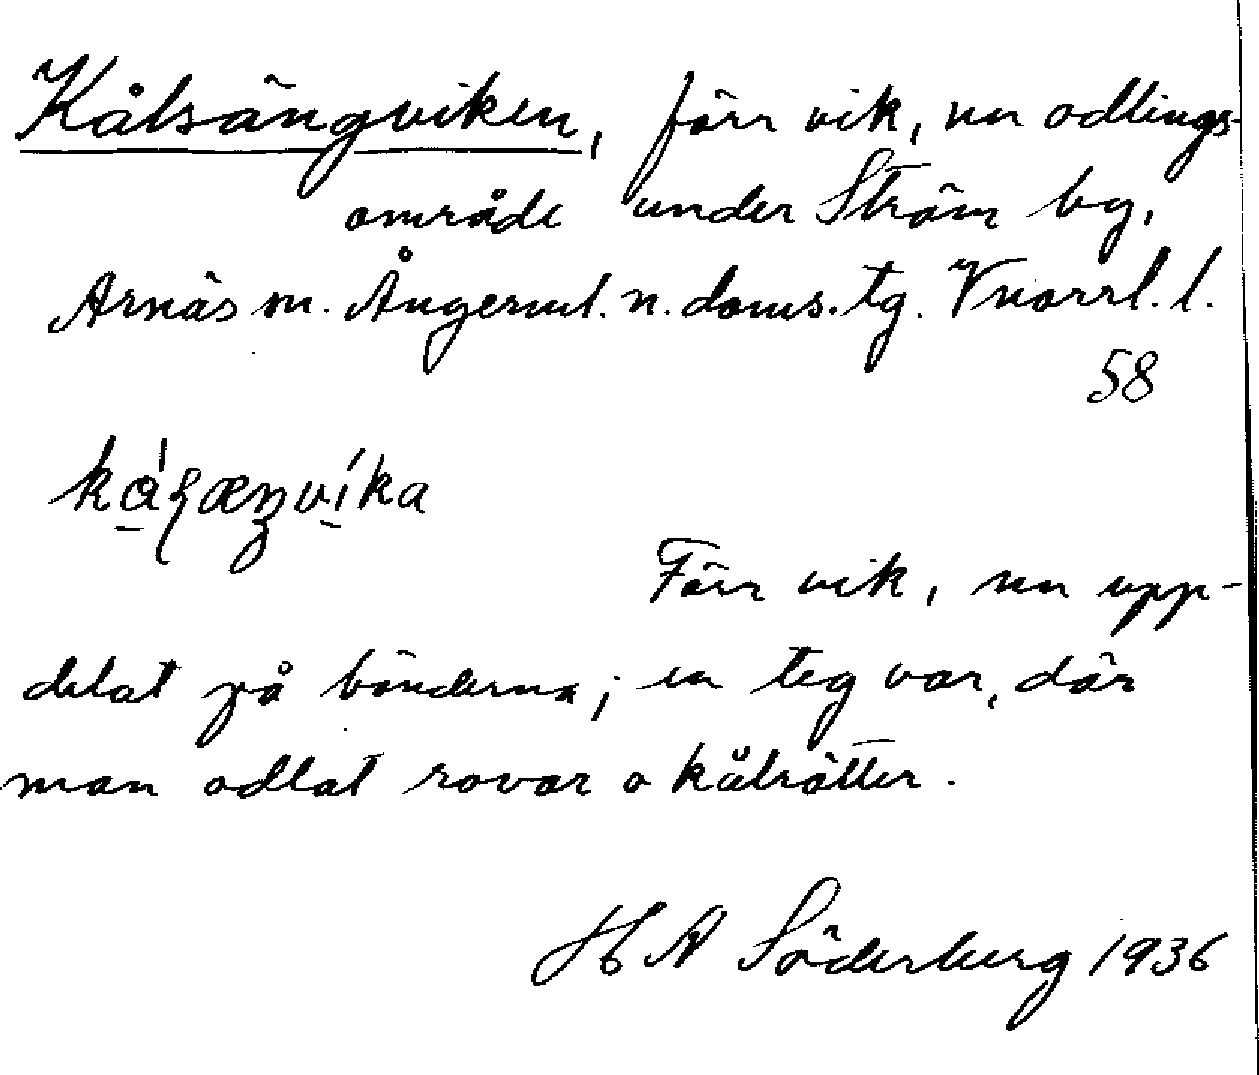 Kålsängviken, förr vik, nu odlings-
område under Ström by,
Arnäs sn. Ångerml. n. doms. tg. Vnorrl. l.
58
Förr vik, nu upp-
delat på bönderna; en teg var, där
man odlat rovor o kålrötter.
H A Söderberg 1936